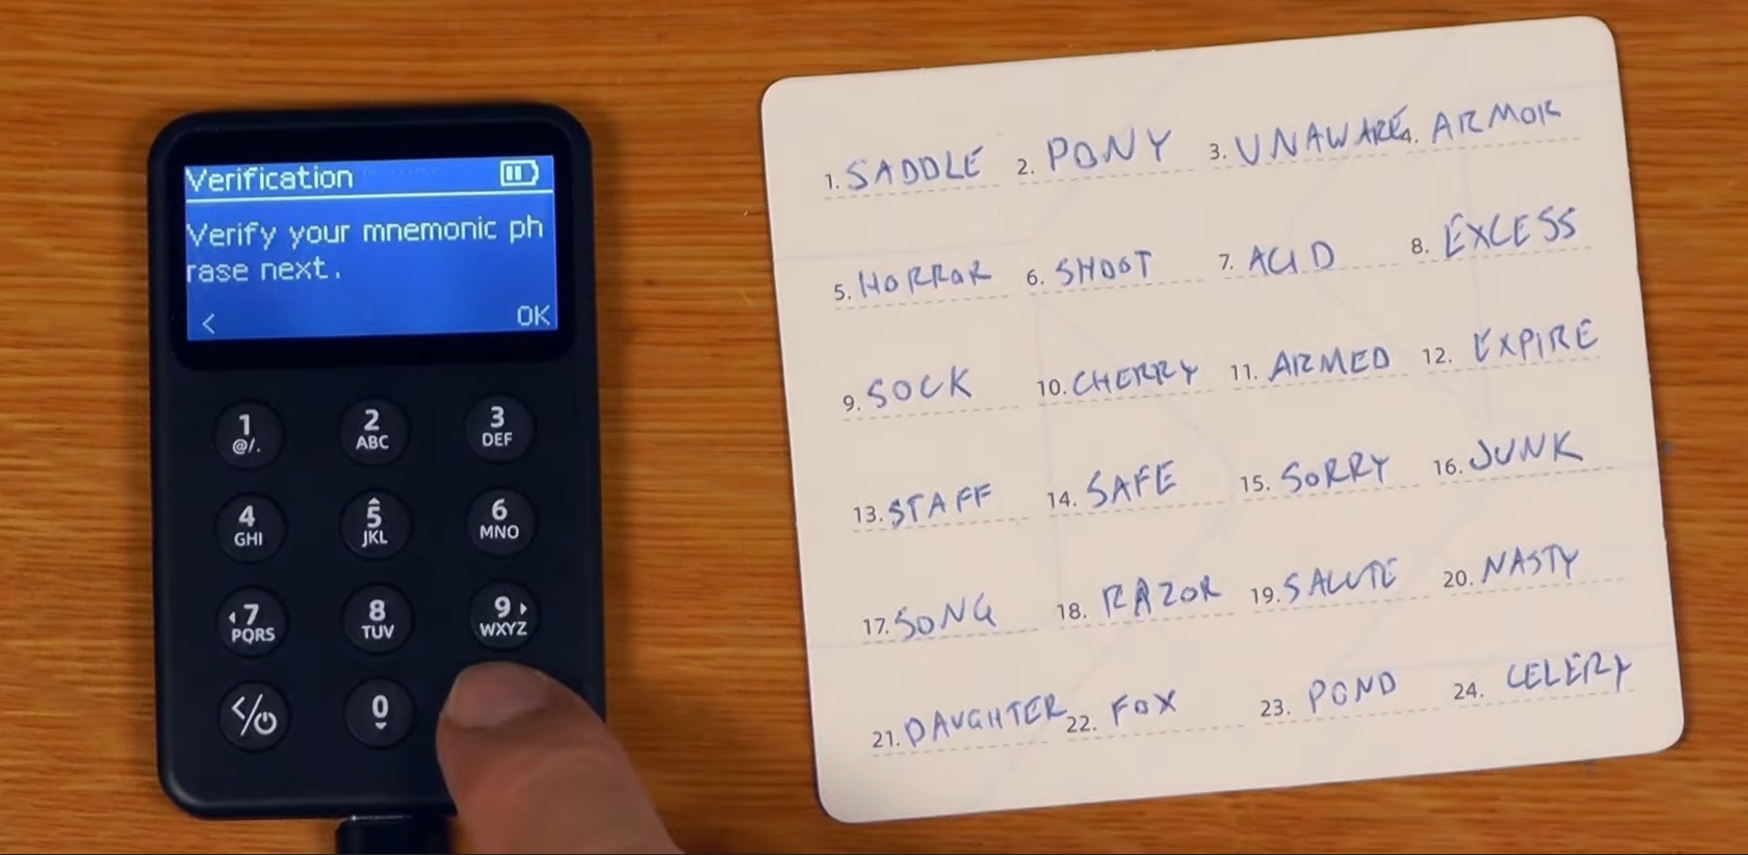 Verification
Verify your mnemonic ph
rase next.
< OK
1 @/. 2 ABC 3 DEF
4 GHI 5 JKL 6 MNO
7 PQRS 8 TUV 9 WXYZ
0
1. SADDLE 2. PONY 3. UNAWARE 4. ARMOR
5. HORROR 6. SHOOT 7. ACID 8. EXCESS
9. SOCK 10. CHERRY 11. ARMED 12. EXPIRE
13. STAFF 14. SAFE 15. SORRY 16. JUNK
17. SONG 18. RAZOR 19. SALUTE 20. NASTY
21. DAUGHTER 22. FOX 23. POND 24. CELERY